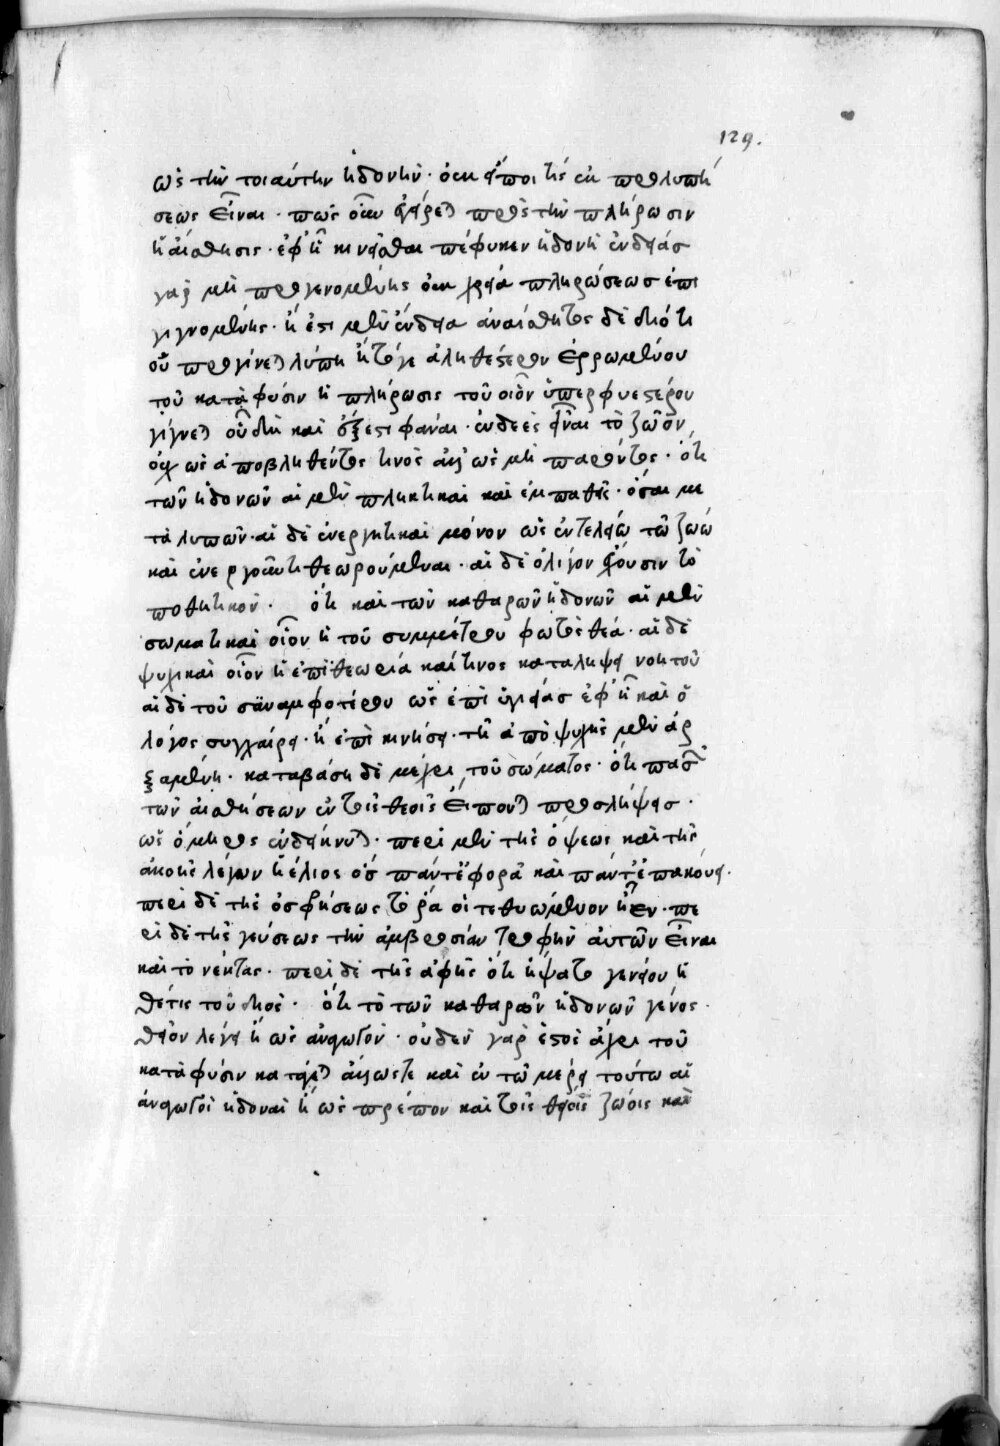 129.
ὡς τὴν τοιαύτην ἡδονήν. ὅτι εἴποι τίς ἐκ προλυπή
σεως εἶναι. πῶς οὖν φέρεται πρὸς τὴν πλήρωσιν
ἡ αἴσθησις. ἐφ' ἣ κινεῖσθαι πέφυκεν ἡδονὴ ἐνδείας
γὰρ μὴ προγενομένης οὐ χρεία πληρώσεως ἐπι
γιγνομένης. ἢ ἔστι μὲν ἔνδεια ἀναίσθητος δὲ διό τι
οὐ προγίνεται λύπη ἢ τό γε ἀληθέστερον ἐρρωμένου
τοῦ κατὰ φύσιν ἡ πλήρωσις τοῦ οἷον ὑπερφυεστέρου
γίγνεται οὗ δὴ καὶ ἔξεστι φάναι. ἐνδεὲς εἶναι τὸ ζῶον
οὐχ ὡς ἀποβληθέντος τινὸς ἀλλ' ὡς μὴ παρόντος. ὅτι
τῶν ἡδονῶν αἱ μὲν πληκτικαὶ καὶ ἐμπαθεῖς. ὅσαι με
τὰ λυπῶν. αἱ δὲ ἐνεργητικαὶ μόνον ὡς ἐν τελείω τῶ ζώω
καὶ ἐνεργοῦντι θεωρούμεναι. αἱ δὲ ὀλίγον ἔχουσιν τὸ
παθητικόν. ὅτι καὶ τῶν καθαρῶν ἡδονῶν αἱ μὲν
σωματικαὶ οἷον ἡ τοῦ συμμέτρου φωτὸς θέα. αἱ δὲ
ψυχικαὶ οἷον ἡ ἐπὶ θεωρία καί τινος καταλήψει νοητοῦ
αἱ δὲ τοῦ συναμφοτέρου ὡς ἐπὶ ὑγιείας ἐφ' ἧ καὶ ὁ
λόγος συγχαίρει. ἢ ἐπὶ κινήσει. τῆ ἀπὸ ψυχῆς μὲν ἀρ
ξαμένη. καταβάση δὲ μέχρι τοῦ σώματος. ὅτι πασῶν
τῶν αἰσθήσεων ἐν τοῖς θεοῖς εἰσὶ προσλήψεις.
ὡς ὅμηρος ἐνδείκνυται. περὶ μὲν τῆς ὄψεως καὶ τῆς
ἀκοῆς λέγων ἠέλιος ὃς πάντ' ἐφορᾶ καὶ πάντ' ἐπακούει.
περὶ δὲ τῆς ὀσφρήσεως τό ῥά οἱ τεθυωμένον ἦεν. πε
ρὶ δὲ τῆς γεύσεως τὴν ἀμβροσίαν τροφὴν αὐτῶν εἶναι
καὶ τὸ νέκταρ. περὶ δὲ τῆς ἀφῆς ὅτι ἥψατο γενείου ἡ
θέτις τοῦ διός. ὅτι τὸ τῶν καθαρῶν ἡδονῶν γένος
θεῖον λέγει ἢ ὡς ἄνωθεν. οὐδὲν γὰρ ἐκτὸς ἄχρι τοῦ
κατὰ φύσιν κατάγεται ἄλλωστε καὶ ἐν τῶ μέρει τούτω αἱ
ἄνωθεν ἡδοναὶ ἢ ὡς πρέπον καὶ τοῖς θείοις ζώοις καὶ